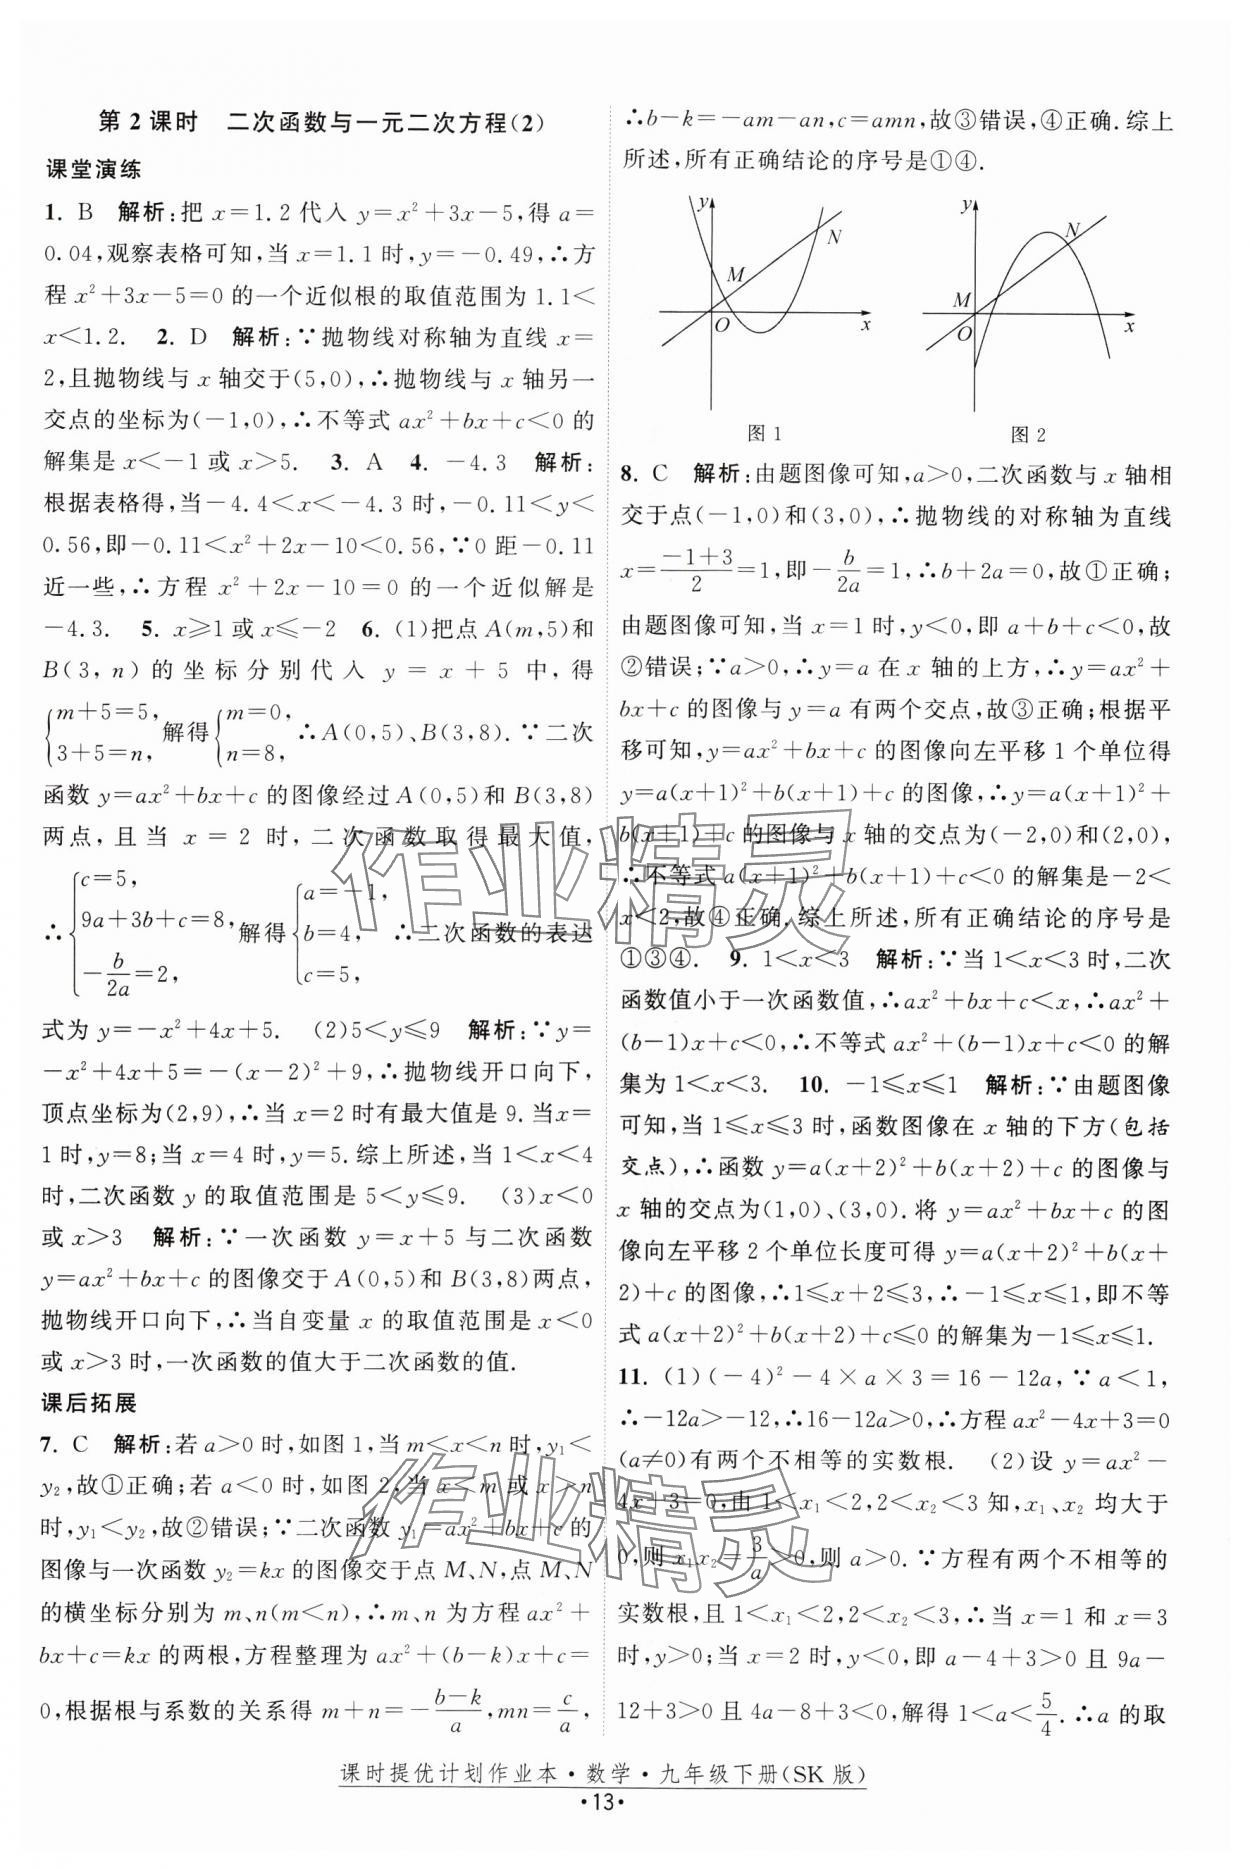 第2课时 二次函数与一元二次方程(2)
课堂演练
1. B 解析:把 x=1.2代入 y=x²+3x-5,得 a=
0.04,观察表格可知,当 x=1.1时,y=-0.49,∴方
程 x²+3x-5=0的一个近似根的取值范围为1.1<
x<1.2. 2. D 解析:∵抛物线对称轴为直线 x=
2,且抛物线与 x 轴交于(5,0),∴抛物线与 x 轴另一
交点的坐标为(-1,0),∴不等式 ax²+bx+c<0的
解集是 x<-1或 x>5. 3. A 4. -4.3 解析:
根据表格得,当-4.4<x<-4.3时,-0.11<y<
0.56,即-0.11<x²+2x-10<0.56,∵0距-0.11
近一些,∴方程 x²+2x-10=0的一个近似解是
-4.3. 5. x≥1或 x≤-2 6. (1)把点 A(m,5)和
B(3,n)的坐标分别代入 y=x+5中,得
{m+5=5, 3+5=n, 解得{m=0, n=8, ∴A(0,5)、B(3,8). ∵二次
函数 y=ax²+bx+c 的图像经过 A(0,5)和 B(3,8)
两点,且当 x=2时,二次函数取得最大值,
∴{c=5, 9a+3b+c=8, -b/2a=2, 解得{a=-1, b=4, c=5, ∴二次函数的表达
式为 y=-x²+4x+5. (2)5<y≤9 解析:∵y=
-x²+4x+5=-(x-2)²+9,∴抛物线开口向下,
顶点坐标为(2,9),∴当 x=2时有最大值是9.当x=
1时,y=8;当 x=4时,y=5.综上所述,当1<x<4
时,二次函数 y 的取值范围是5<y≤9. (3)x<0
或 x>3 解析:∵一次函数 y=x+5与二次函数
y=ax²+bx+c 的图像交于 A(0,5)和 B(3,8)两点,
抛物线开口向下,∴当自变量 x 的取值范围是 x<0
或 x>3时,一次函数的值大于二次函数的值.
课后拓展
7. C 解析:若 a>0时,如图1,当 m<x<n 时,y₁<
y₂,故①正确;若 a<0时,如图2,当 x<m 或 x>n
时,y₁<y₂,故②错误;∵二次函数 y₁=ax²+bx+c 的
图像与一次函数 y₂=kx 的图像交于点 M、N,点 M、N
的横坐标分别为 m、n(m<n),∴m、n 为方程 ax²+
bx+c=kx 的两根,方程整理为 ax²+(b-k)x+c=
0,根据根与系数的关系得 m+n=-(b-k)/a,mn=c/a,
∴b-k=-am-an,c=amn,故③错误,④正确.综上
所述,所有正确结论的序号是①④.
y N M O x
图1
y N M O x
图2
8. C 解析:由题图像可知,a>0,二次函数与 x 轴相
交于点(-1,0)和(3,0),∴抛物线的对称轴为直线
x=(-1+3)/2=1,即-b/2a=1,∴b+2a=0,故①正确;
由题图像可知,当 x=1时,y<0,即 a+b+c<0,故
②错误;∵a>0,∴y=a 在 x 轴的上方,∴y=ax²+
bx+c 的图像与 y=a 有两个交点,故③正确;根据平
移可知,y=ax²+bx+c 的图像向左平移1个单位得
y=a(x+1)²+b(x+1)+c 的图像,∴y=a(x+1)²+
b(x+1)+c 的图像与 x 轴的交点为(-2,0)和(2,0),
∴不等式 a(x+1)²+b(x+1)+c<0的解集是-2<
x<2,故④正确.综上所述,所有正确结论的序号是
①③④. 9. 1<x<3 解析:∵当1<x<3时,二次
函数值小于一次函数值,∴ax²+bx+c<x,∴ax²+
(b-1)x+c<0,∴不等式 ax²+(b-1)x+c<0的解
集为1<x<3. 10. -1≤x≤1 解析:∵由题图像
可知,当1≤x≤3时,函数图像在 x 轴的下方(包括
交点),∴函数 y=a(x+2)²+b(x+2)+c 的图像与
x 轴的交点为(1,0)、(3,0).将 y=ax²+bx+c 的图
像向左平移2个单位长度可得 y=a(x+2)²+b(x+
2)+c 的图像,∴1≤x+2≤3,∴-1≤x≤1,即不等
式 a(x+2)²+b(x+2)+c≤0的解集为-1≤x≤1.
11. (1)(-4)²-4×a×3=16-12a,∵a<1,
∴-12a>-12,∴16-12a>0,∴方程 ax²-4x+3=0
(a≠0)有两个不相等的实数根. (2)设 y=ax²-
4x+3=0,由1<x₁<2,2<x₂<3知,x₁、x₂ 均大于
0,则 x₁x₂=3/a>0,则 a>0.∵方程有两个不相等的
实数根,且1<x₁<2,2<x₂<3,∴当 x=1和 x=3
时,y>0;当 x=2时,y<0,即 a-4+3>0且9a-
12+3>0且4a-8+3<0,解得1<a<5/4.∴a 的取
课时提优计划作业本·数学·九年级下册(SK 版)
·13·
作业精灵
作业精灵